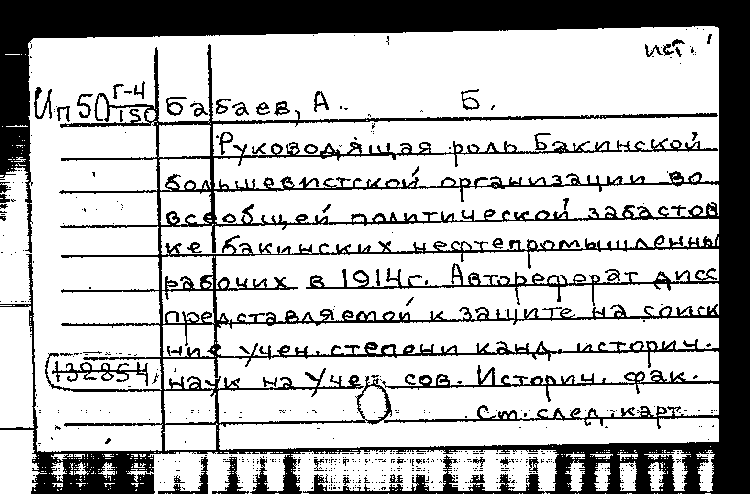 ист.
Ип50 Г-4/150 Бабаев, А. Б.
Руководящая роль Бакинской
большевистской организации во
всеобщей политической забастов
ке бакинских нефтепромышленны
рабочих в 1914г. Автореферат дисс
представляемой к защите на соиск
ние учен. степени канд. историч.
132854 наук на Учен. сов. Историч. фак.
См. след. карт